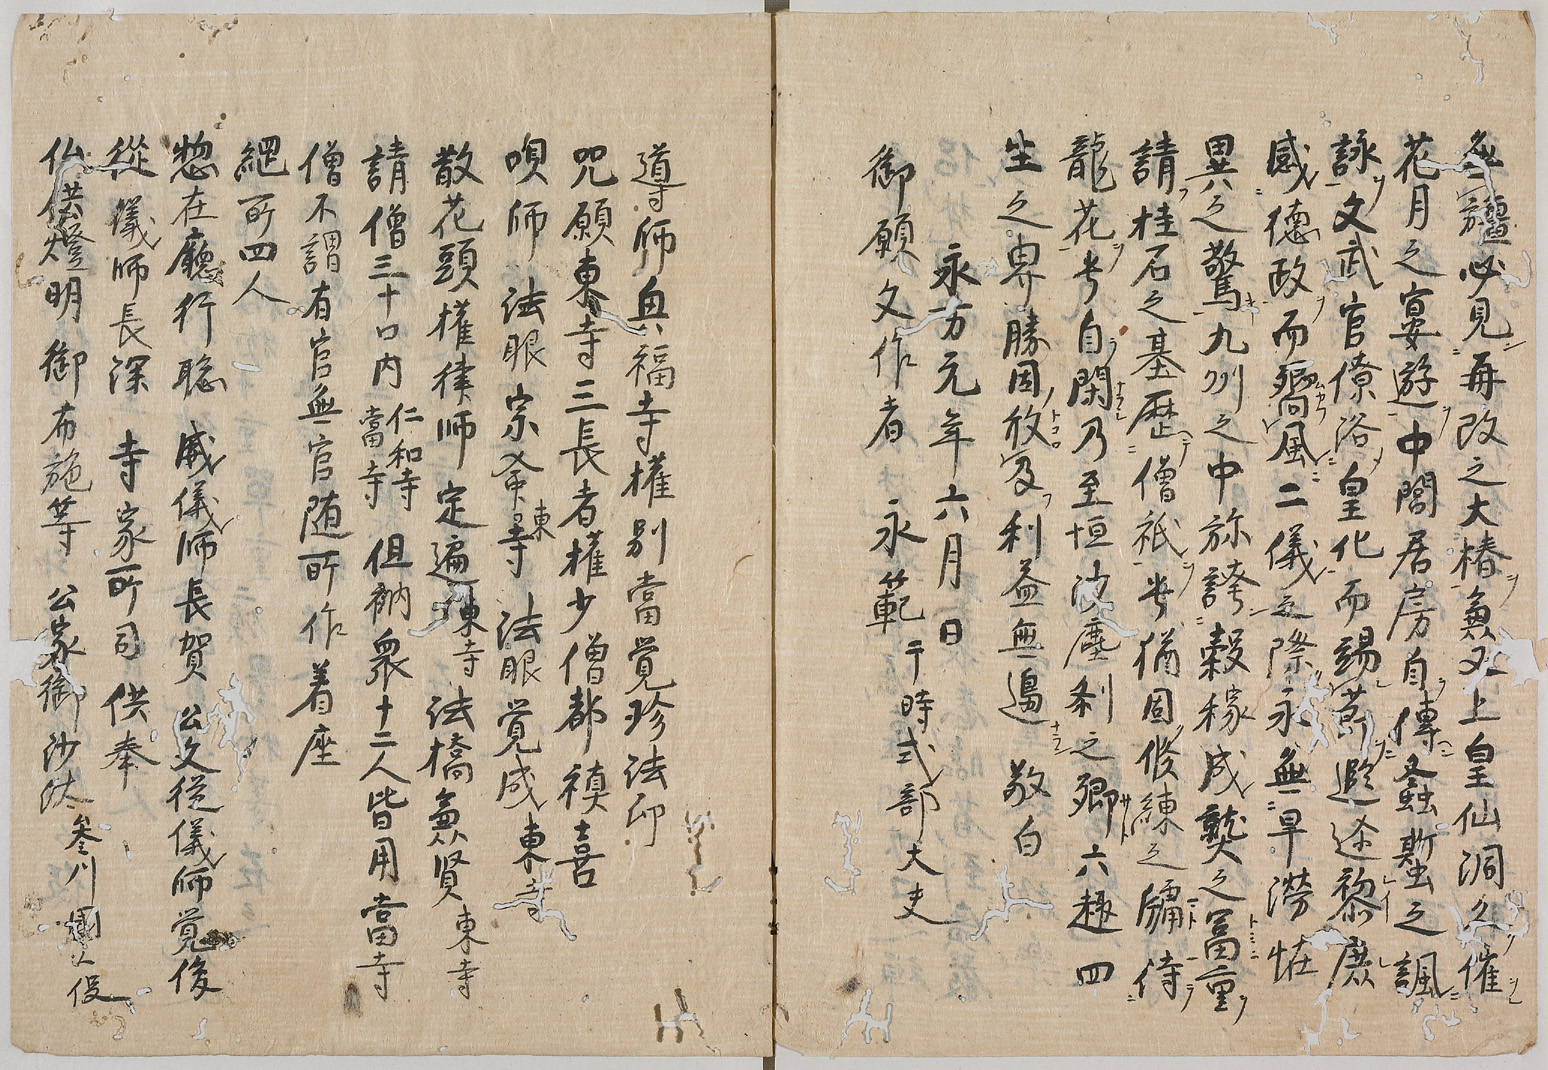 無疆必見再改之大椿兼又上皇仙洞久催
花月之宴遊中闈居房自傳螽斯之諷
詠文武官僚浴皇化而錫爵遐迩黎庶
感徳政而嚮風二儀之際永無旱澇恠
異之驚九州之中弥誇穀稼成熟之富重
請桂石之基歴僧祇兮猶固修練之牖待
龍花兮自開乃至恒沙塵刹之郷六趣四
生之界勝因所及利益無邊敬白
永万元年六月日
御願文作者永範于時式部大夫
導師興福寺權別當覚珍法印
咒願東寺三長者權少僧都禎喜
唄師法眼宗命東寺 法眼覚成東寺
散花頭權律師定遍東寺 法橋兼賢東寺
請僧三十口内仁和寺當寺但衲衆十二人皆用當寺
僧不謂有官無官随所作着座
綱所四人
惣在廳行聡 威儀師長賀 公文從儀師覚俊
從儀師長深 寺家所司供奉
仏供燈明御布施等 公家御沙汰参川國